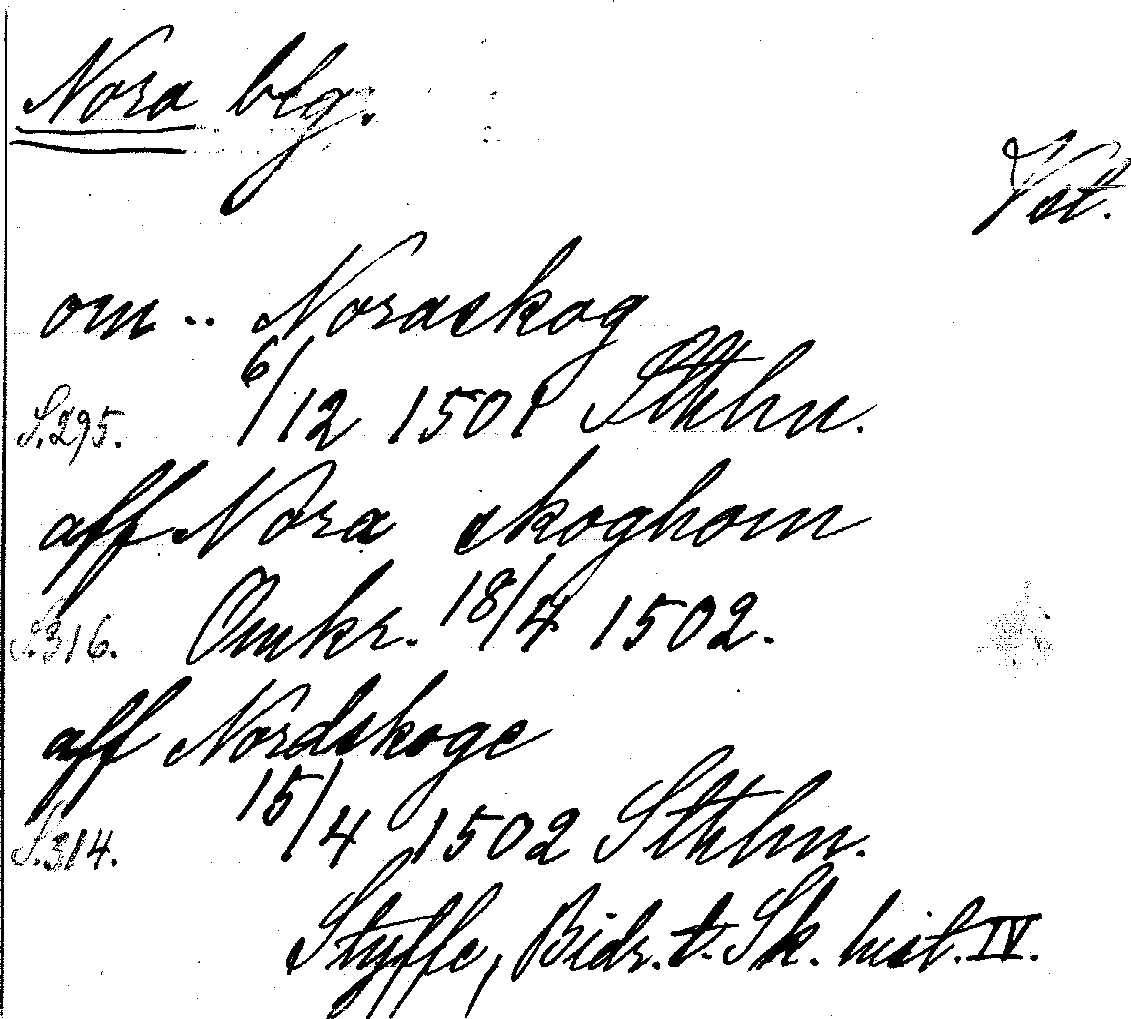 Nora blg.
Vst.
om .. Noraskog
S. 295. 6/12 1501 Sthlm.
aff Nora skoghom
S. 316. Omkr. 18/4 1502.
aff Nordskoge
S. 314. 15/4 1502 Sthlm.
Styffe, Bidr. t. Sk. hist. IV.